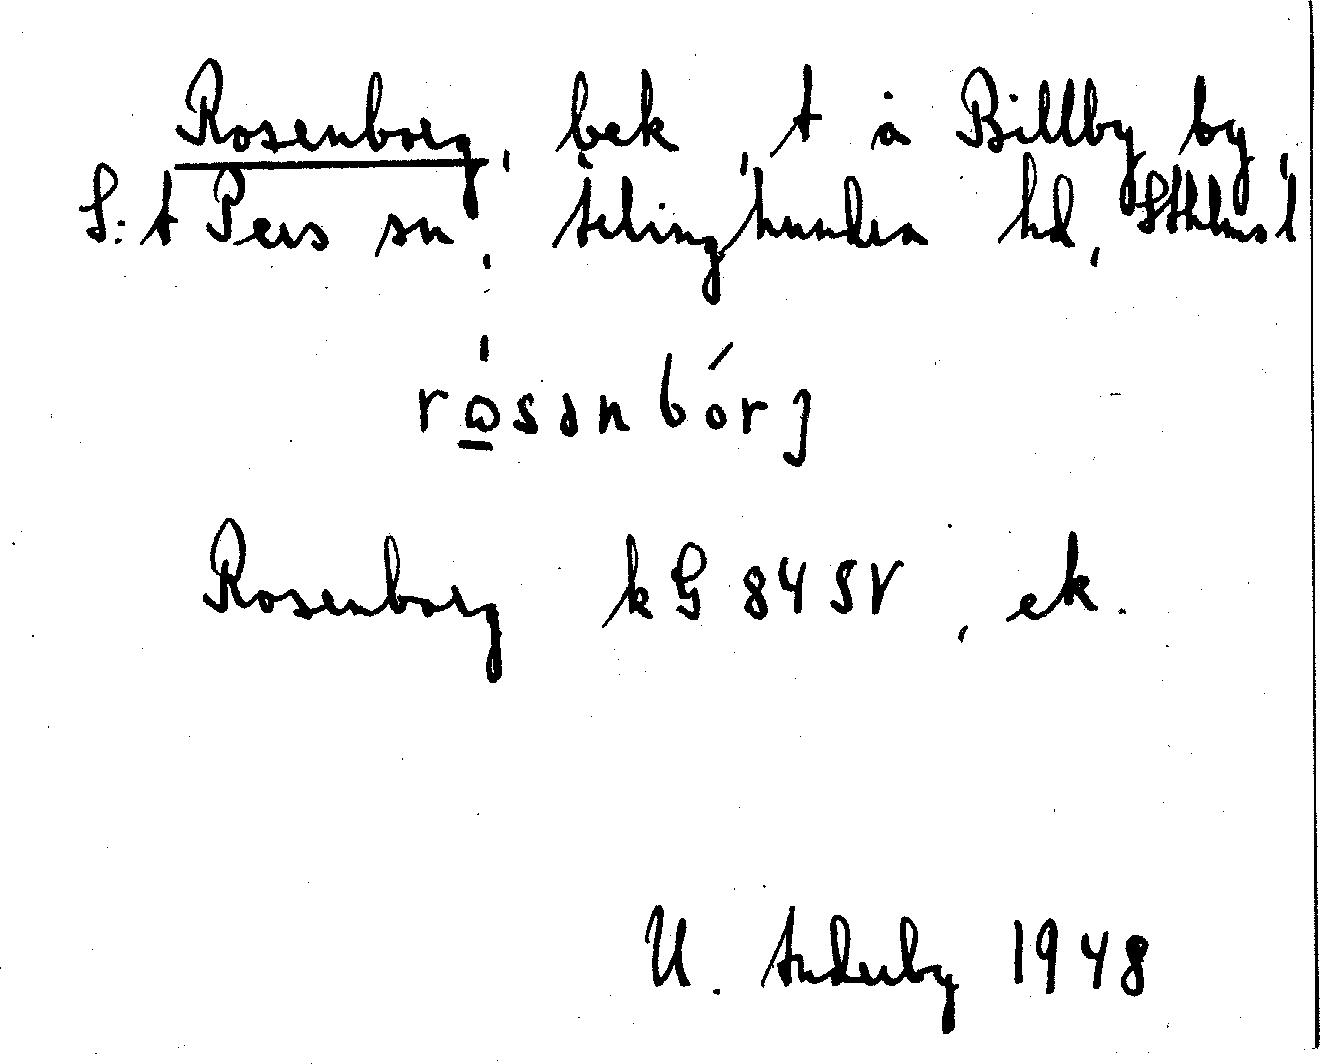 Rosenborg, bek, t å Billby by,
S:t Pers sn, Ärlinghundra hd, Sthlms l
Rosenborg kG 84 SV, ek.
U. 1948